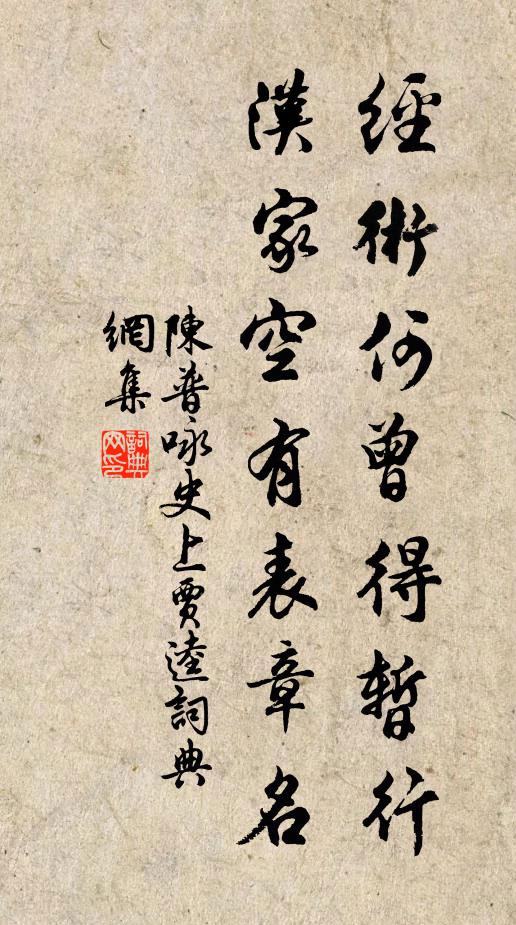 經術何曾得暫行
漢家空有表章名
陳普咏史上賈逵詞典
網集
詞典网印